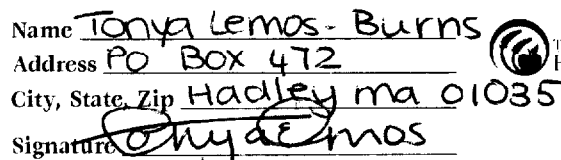 Name Tonya Lemos-Burns
Address PO Box 472
City, State, Zip Hadley ma 01035
Signature Tonya Lemos